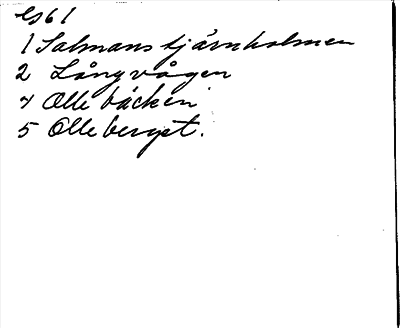 Es61
1 Salmanstjärnholmen
2 Långvågen
4 Ollebäcken
5 Olleberget.